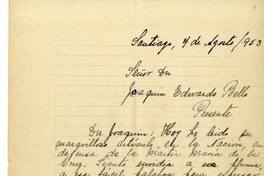 Santiago, 4 de Agosto/953
Señor Dn
Joaquin Edwards Bello
Presente
Dn Joaquin: Hoy he leido su
margorillos artículo, en la Nacion, en
defensa de la mater María de la
Cruz. Siento envidia a su pluma,
a su facil palabra para